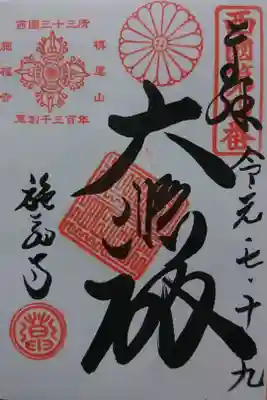 奉拝
西國第四番
令元・七・十九
大悲殿
西國三十三所
槇尾山
施福寺
草創千三百年
施福寺